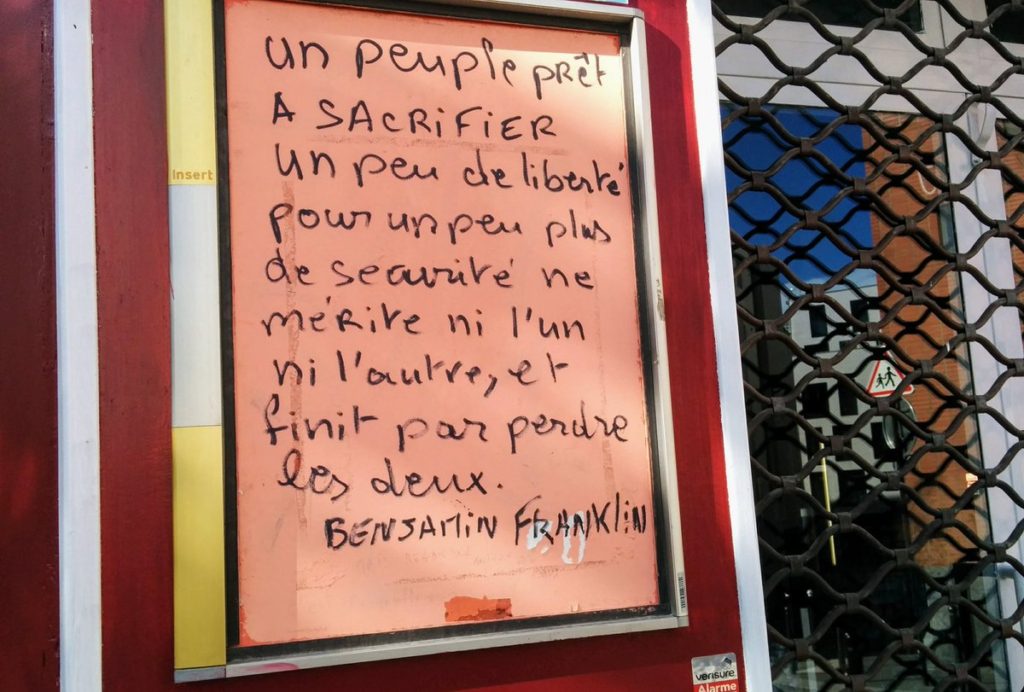 un peuple prêt
A SACRIFIER
un peu de liberté
pour un peu plus
de securité ne
mérite ni l'un
ni l'autre, et
finit par perdre
les deux.
BENJAMIN FRANKLIN
Insert
verisure
Alarme